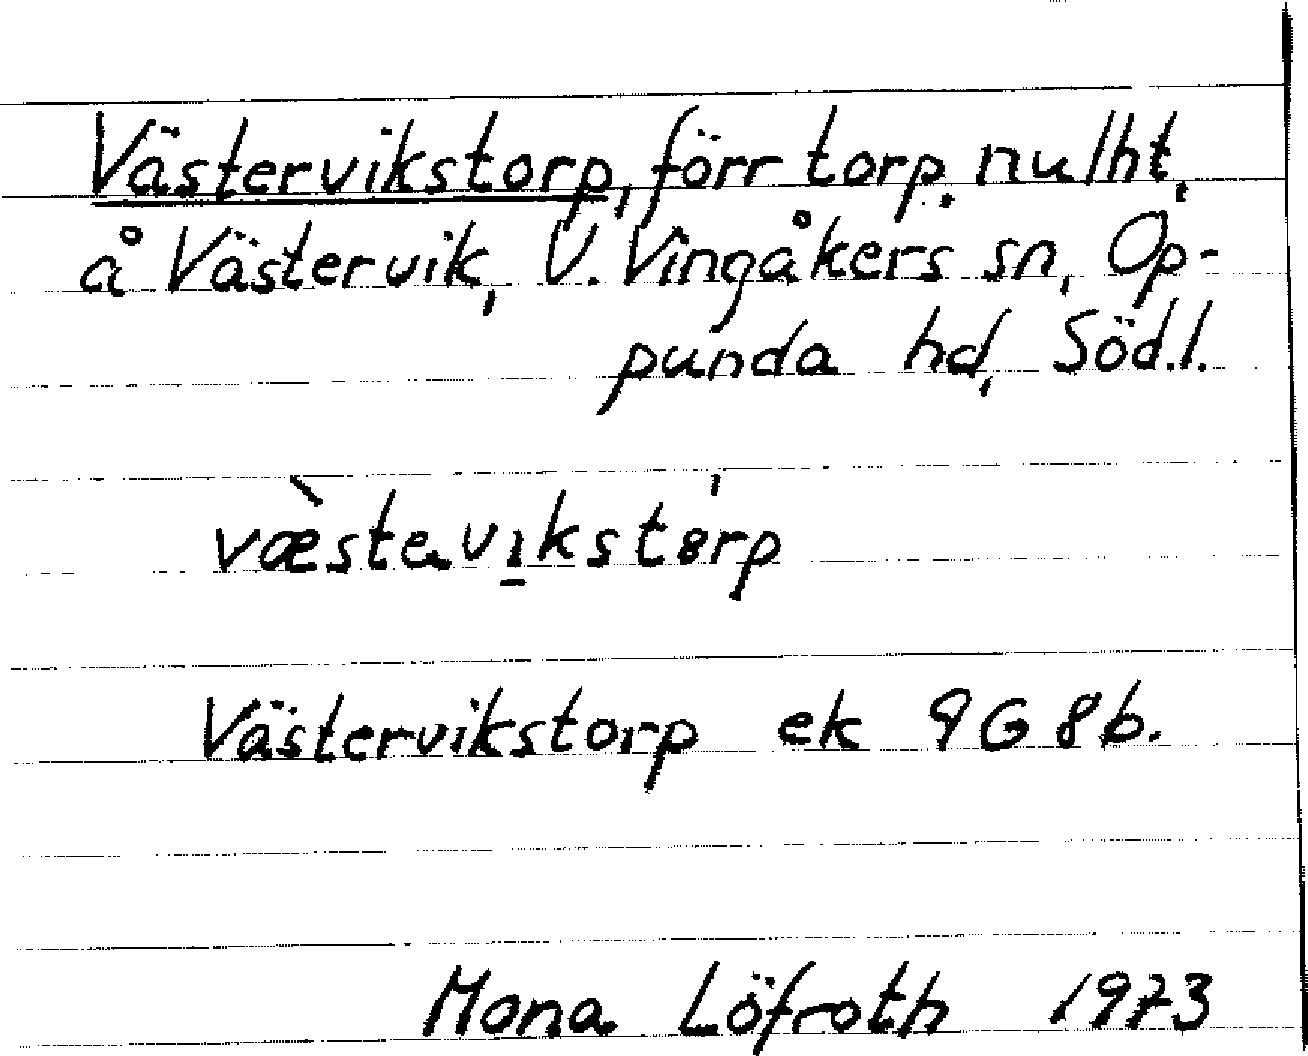 Västervikstorp, förr torp. nu lht,
å Västervik, V. Vingåkers sn, Op-
punda hd, Söd.l.
væ̀stavı̱kstɵ'rp
Västervikstorp ek 9G 8b.
Mona Löfroth 1973